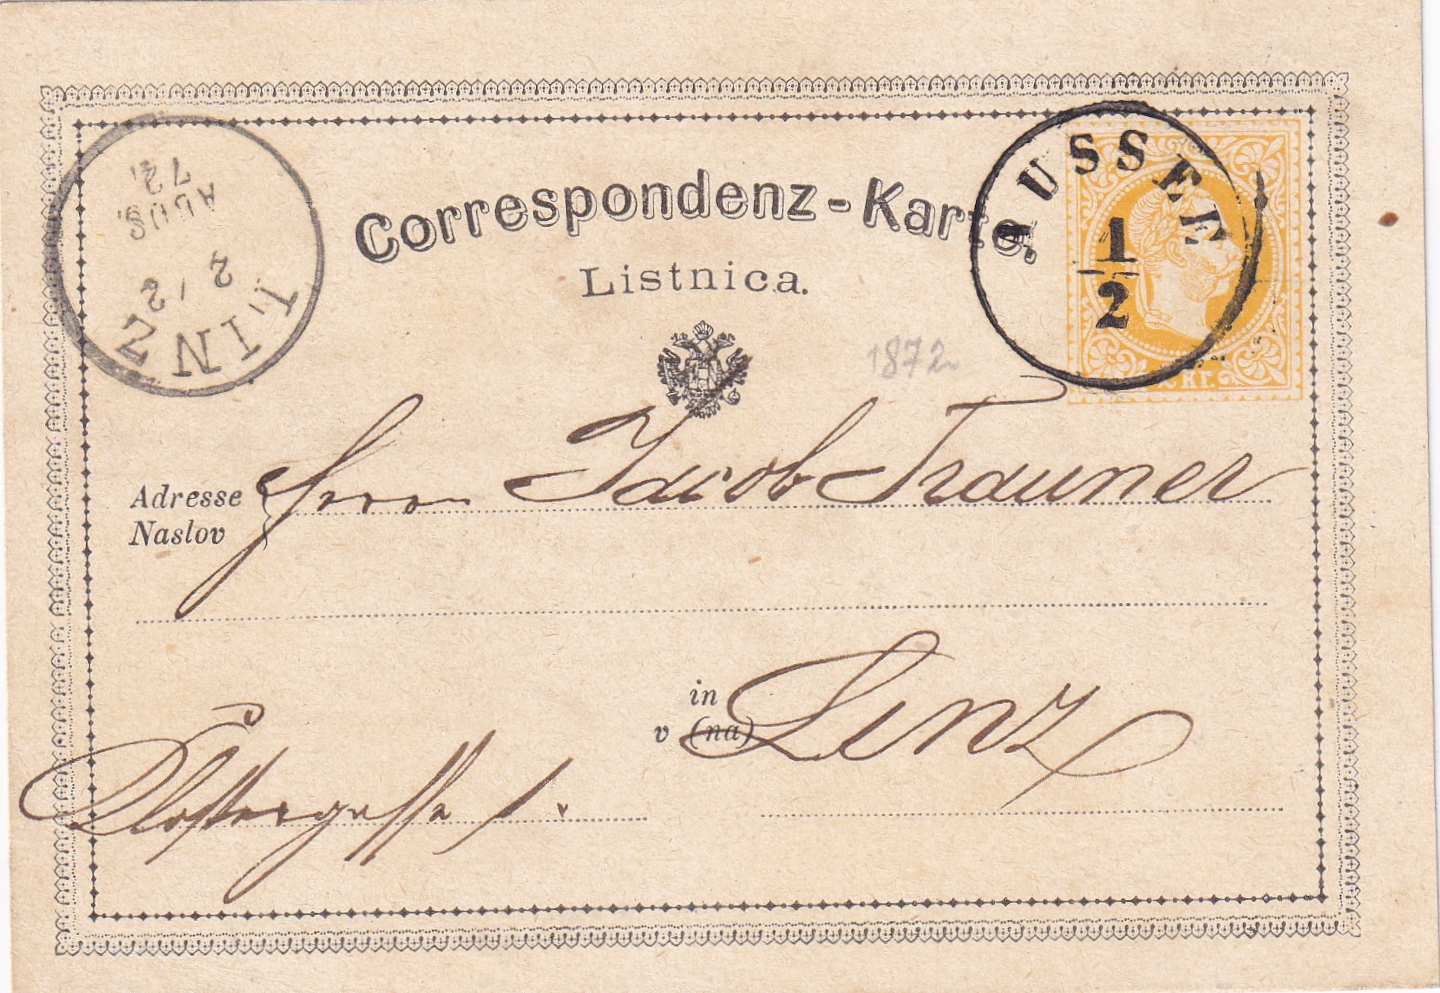 Correspondenz-Karte.
Listnica.
AUSSEE
1
2
LINZ
2/2
72
1872
Adresse
Naslov
Herrn Jacob Trauner
in
v (na)
Linz
Klostergasse 1.
KR.